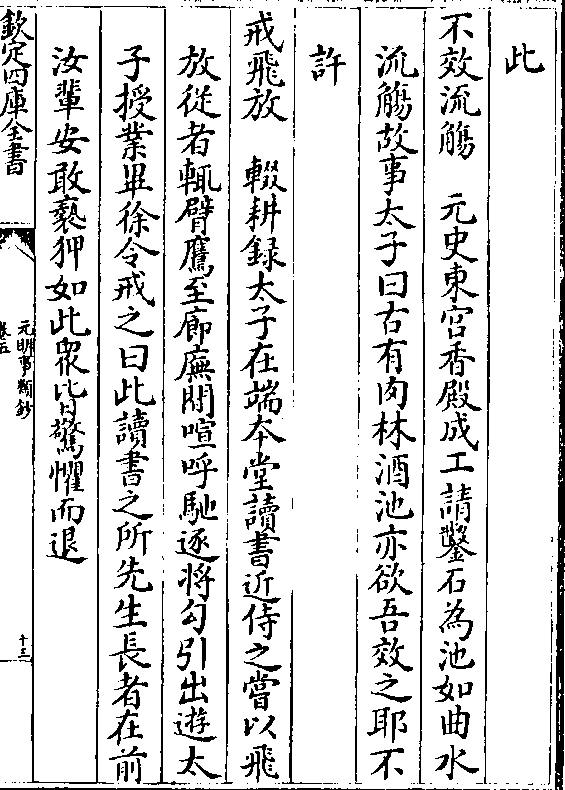 此
不效流觴　元史東宫香殿成工請鑿石為池如曲水
流觴故事太子曰古有肉林酒池亦欲吾效之耶不
許
戒飛放　輟耕録太子在端本堂讀書近侍之嘗以飛
放從者輒臂鷹至廊廡間喧呼馳逐將勾引出遊太
子授業畢徐令戒之曰此讀書之所先生長者在前
汝輩安敢褻狎如此衆皆驚懼而退
欽定四庫全書
元明事類鈔
卷五
十三